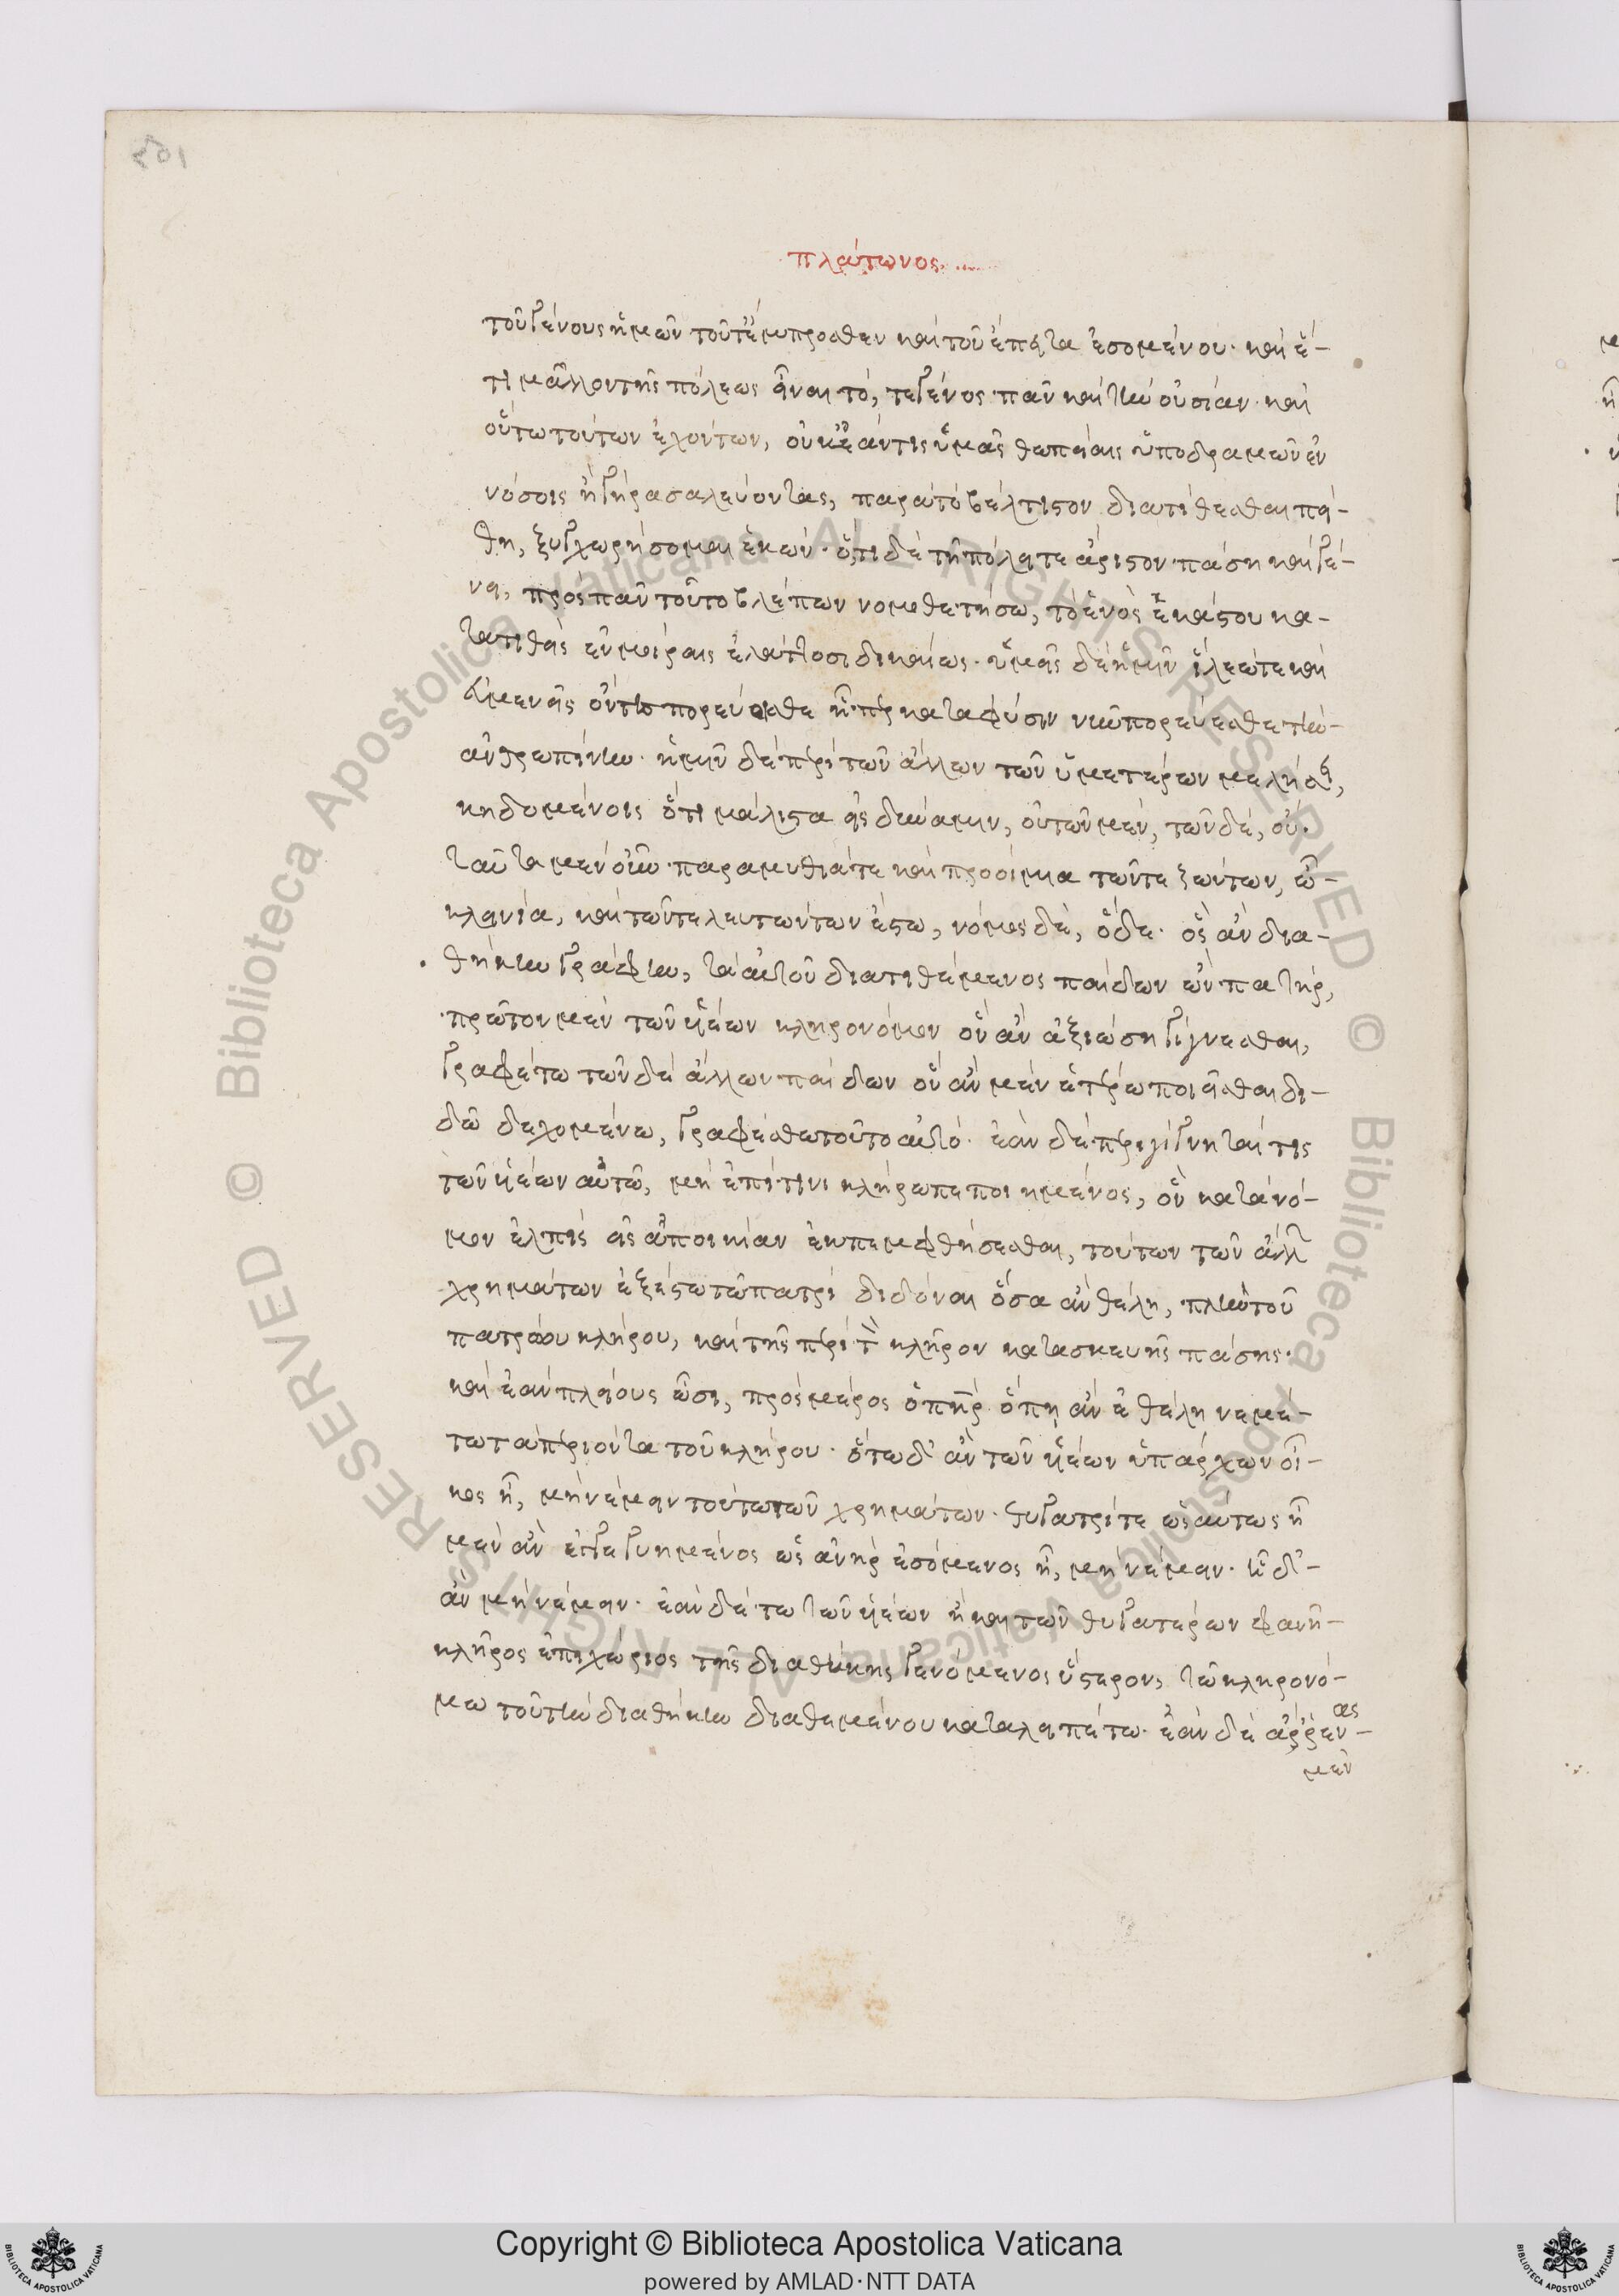 πλάτωνος
τοῦ γένους ὑμῶν τοῦ τ' ἔμπροσθεν καὶ τοῦ ἔπειτα ἐσομένου· καὶ ἔ-
τι μᾶλλον τῆς πόλεως εἶναι τό, τε γένος πᾶν καὶ τὴν οὐσίαν· καὶ
οὕτω τούτων ἐχόντων, οὐκ ἐάν τις ὑμᾶς θωπείαις ὑποδραμὼν ἐν
νόσοις ἢ γήρα σαλεύοντας, παρὰ τὸ βέλτιστον διατίθεσθαι πεί-
θη, ξυγχωρήσομαι ἑκών· ὅ,τι δὲ τῇ πόλει τε ἄριστον πάση καὶ γέ-
νει, πρὸς πᾶν τοῦτο βλέπων νομοθετήσω, τὸ ἑνὸς ἑκάστου κα-
τατιθεὶς ἐν μοίραις ἐλάττοσι δικαίως· ὑμεῖς δὲ ἡμῖν ἵλεώ τε καὶ
εὐμενεῖς ὄντες πορεύεσθε ᾗπερ κατὰ φύσιν νῦν πορεύεσθε τὴν
ἀνθρωπίνην· ἡμῖν δὲ περὶ τῶν ἄλλων τῶν ὑμετέρων μελήσει,
κηδομένοις ὅτι μάλιστα εἰς δύναμιν, οὐ τῶν μέν, τῶν δέ, οὔ·
ταῦτα μὲν οὖν παραμυθιά τε καὶ προοίμια τῶν τε ζώντων, ὦ
κλεινία, καὶ τῶν τελευτώντων ἔστω, νόμος δέ, ὅδε· ὃς ἂν δια-
θήκην γράφῃ, τὰ αὑτοῦ διατιθέμενος παίδων ὢν πατήρ,
πρῶτον μὲν τῶν υἱέων κληρονόμον ὃν ἂν ἀξιώση γίγνεσθαι,
γραφέτω τῶν δὲ ἄλλων παίδων ὃν ἂν μὲν ἑτέρω ποιεῖσθαι δι-
δῶ δεχομένω, γραφέσθω τοῦτο αὐτό· ἐὰν δὲ περιγίγνηταί τις
τῶν υἱέων αὐτῶ, μὴ ἐπί τινι κλήρω πεποιημένος, ὃν κατὰ νό-
μον ἐλπὶς εἰς ἀποικίαν ἐκπεμφθήσεσθαι, τούτων τῶν ἄλλ
χρημάτων ἐξέστω τῶ πατρὶ διδόναι ὅσα ἂν θέλη, πλὴν τοῦ
πατρώου κλήρου, καὶ τῆς περὶ τ κλῆρον κατασκευῆς πάσης·
καὶ ἐὰν πλείους ὦσι, πρὸς μέρος ὁ πηρ ὅπη ἂν ἐθέλη νεμέ-
τω τὰ περιόντα τοῦ κλήρου· ὅτω δ' ἂν τῶν υἱέων ὑπάρχων οἶ-
κος ᾖ, μὴ νέμειν τούτω τῶν χρημάτων· θυγατρί τε ὡσαύτως ᾗ
μὲν ἂν ἐγγεγυημένος ὡς ἀνὴρ ἐσόμενος ᾖ, μὴ νέμειν· ᾗ δ'
ἂν μὴ νέμειν· ἐὰν δέ τω τῶν υἱέων ἢ καὶ τῶν θυγατέρων φανῆ
κλῆρος ἐπιχώριος τῆς διαθήκης γενόμενος ὕστερον, τῶ κληρονό-
μω τοῦ τὴν διαθήκην διαθεμένου καταλειπέτω· ἐὰν δὲ ἄρρενας
μὲν
Copyright © Biblioteca Apostolica Vaticana
powered by AMLAD·NTT DATA